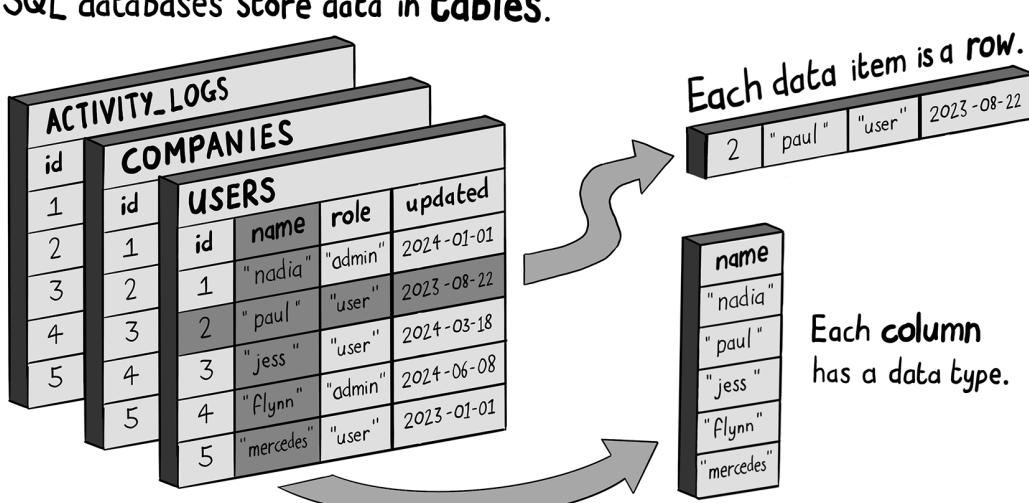 SQL databases store data in tables.
ACTIVITY_LOGS
id
1
2
3
4
5
COMPANIES
id
1
2
3
4
5
USERS
id name role updated
1 "nadia" "admin" 2024-01-01
2 "paul" "user" 2023-08-22
3 "jess" "user" 2024-03-18
4 "flynn" "admin" 2024-06-08
5 "mercedes" "user" 2023-01-01
Each data item is a row.
2 "paul" "user" 2023-08-22
name
"nadia"
"paul"
"jess"
"flynn"
"mercedes"
Each column
has a data type.